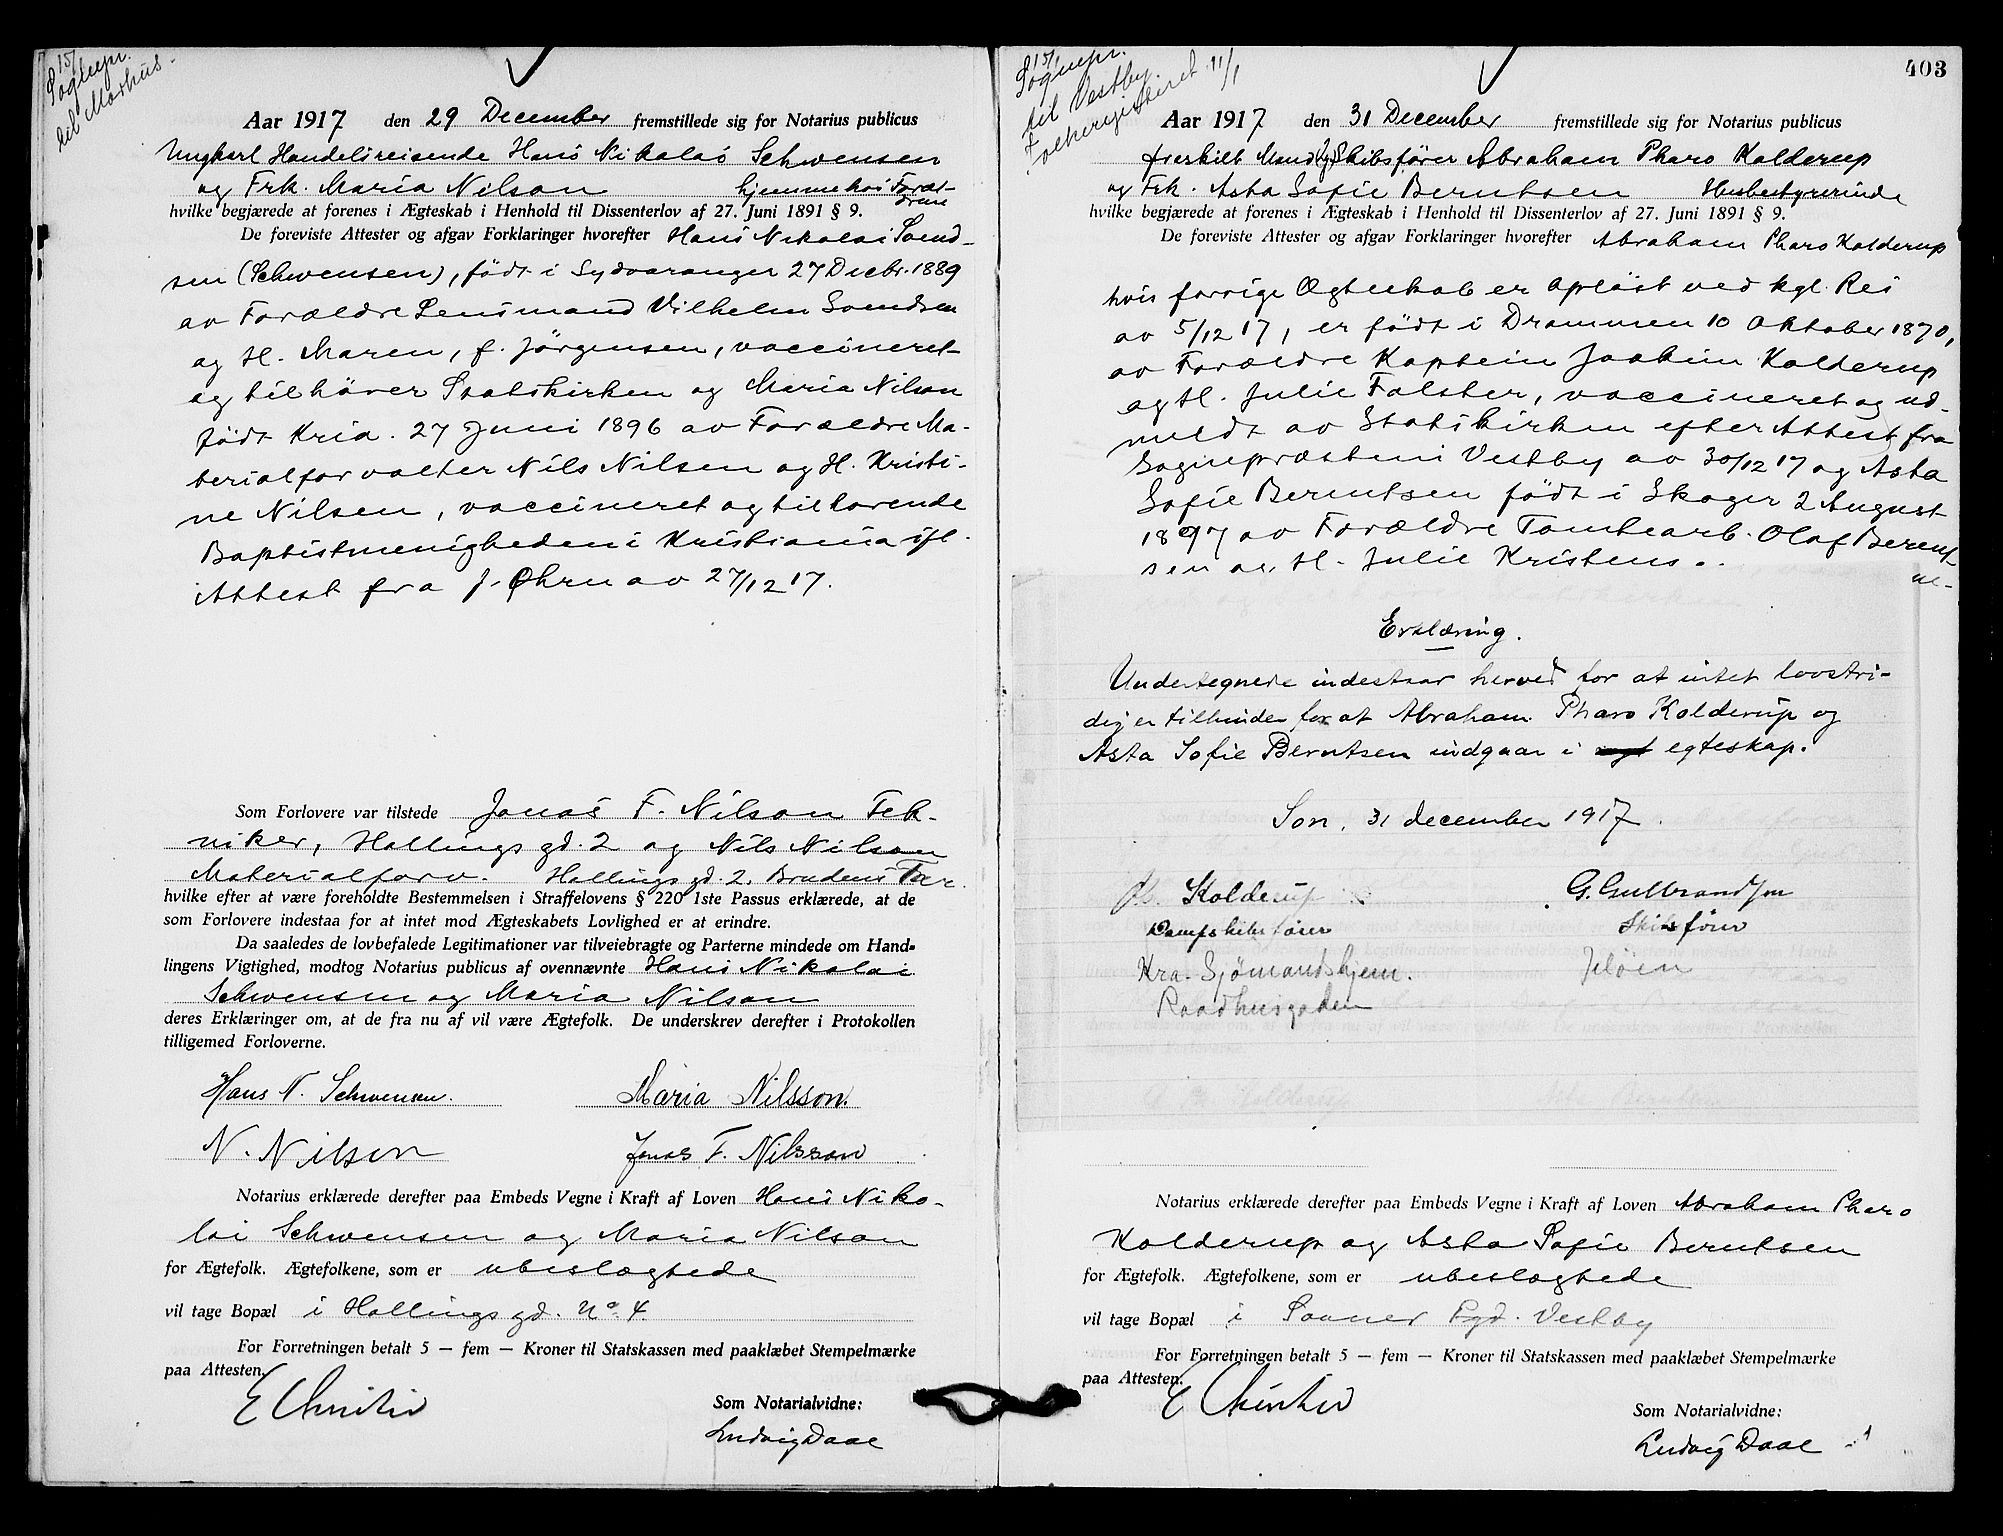 15/1
Sognepr.
til Markus.
Aar 1917 den 29 December fremstillede sig for Notarius publicus
Ungkarl Handelsreisende Hans Nikolai Schwensen
og Frk. Maria Nilson hjemme hos Foræl-
drene
hvilke begjærede at forenes i Ægteskab i Henhold til Dissenterlov af 27. Juni 1891 § 9.
De foreviste Attester og afgav Forklaringer hvorefter Hans Nikolai Svend-
sen (Schwensen), født i Sydvaranger 27 Decbr. 1889
av Forældre Lensmand Vilhelm Svendsen
og H. Maren, f. Jörgensen, vaccineret
og tilhører Statskirken og Maria Nilson
født Kria. 27 Juni 1896 av Forældre Ma-
terialforvalter Nils Nilsen og H. Kristi-
ne Nilsen, vaccineret og tilhørende
Baptistmenigheden i Kristiania ifl.
Attest fra J. Øhrn av 27/12 17.
Som Forlovere var tilstede Jonas F. Nilson Tek-
niker, Hallings gd. 2 og Nils Nilson
Materialforv. Hallings gd. 2. Brudens Far.
hvilke efter at være foreholdte Bestemmelsen i Straffelovens § 220 1ste Passus erklærede, at de
som Forlovere indestaa for at intet mod Ægteskabets Lovlighed er at erindre.
Da saaledes de lovbefalede Legitimationer var tilveiebragte og Parterne mindede om Hand-
lingens Vigtighed, modtog Notarius publicus af ovennævnte Hans Nikolai
Schwensen og Maria Nilson
deres Erklæringer om, at de fra nu af vil være Ægtefolk. De underskrev derefter i Protokollen
tilligemed Forloverne.
Hans N. Schwensen. Maria Nilsson.
N. Nilson Jonas F. Nilsson
Notarius erklærede derefter paa Embeds Vegne i Kraft af Loven Hans Niko-
lai Schwensen og Maria Nilson
for Ægtefolk. Ægtefolkene, som er ubeslægtede
vil tage Bopæl i Hallings gd. No. 4.
For Forretningen betalt 5 — fem — Kroner til Statskassen med paaklæbet Stempelmærke
paa Attesten.
E Christie
Som Notarialvidne:
Ludvig Daae
15/1
Sognepr.
til Vestby
Folkeregisteret 11/1
403
Aar 1917 den 31 December fremstillede sig for Notarius publicus
fraskilt Mand Skibsfører Abraham Pharo Kolderup
og Frk. Asta Sofie Berntsen Husbestyrerinde
hvilke begjærede at forenes i Ægteskab i Henhold til Dissenterlov af 27. Juni 1891 § 9.
De foreviste Attester og afgav Forklaringer hvorefter Abraham Pharo Kolderup
hvis forrige Ægteskab er opløst ved kgl. Res
av 5/12 17, er født i Drammen 10 Oktober 1870,
av Forældre Kaptein Joakim Kolderup
og H. Julie Falster, vaccineret og ud-
meldt av Statskirken efter Attest fra
Sognepræsten i Vestby av 30/12 17 og Asta
Sofie Berntsen født i Skoger 2 August
1897 av Forældre Tomtearb. Olaf Bernt-
sen og H. Julie Kristens.
Erklæring.
Undertegnede indestaar herved for at intet lovstri-
dig er tilhinder for at Abraham Pharo Kolderup og
Asta Sofie Berntsen indgaar i egteskap.
Son, 31 december 1917.
Kolderup G. Gulbrandsen
Dampskibsfører Skibsfører
Kra. Sjømandshjem. Jeløen
Raadhusgaden
Notarius erklærede derefter paa Embeds Vegne i Kraft af Loven Abraham Pharo
Kolderup og Asta Sofie Berntsen
for Ægtefolk. Ægtefolkene, som er ubeslægtede
vil tage Bopæl i Vestby
For Forretningen betalt 5 — fem — Kroner til Statskassen med paaklæbet Stempelmærke
paa Attesten.
E Christie
Som Notarialvidne:
Ludvig Daae